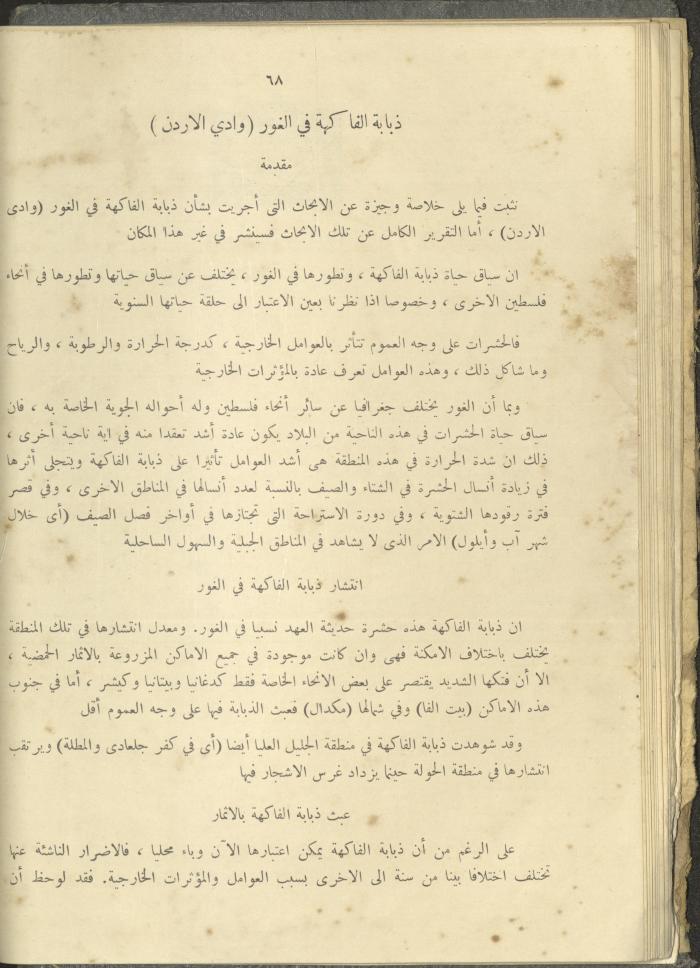 ٦٨
ذبابة الفاكهة في الغور (وادي الاردن)
مقدمة
نثبت فيما يلى خلاصة وجيزة عن الابحاث التى أجريت بشأن ذبابة الفاكهة في الغور (وادى
الاردن) ، أما التقرير الكامل عن تلك الابحاث فسينشر في غير هذا المكان
ان سياق حياة ذبابة الفاكهة ، وتطورها في الغور ، يختلف عن سياق حياتها وتطورها في أنحاء
فلسطين الاخرى ، وخصوصا اذا نظرنا بعين الاعتبار الى حلقة حياتها السنوية
فالحشرات على وجه العموم تتأثر بالعوامل الخارجية ، كدرجة الحرارة والرطوبة ، والرياح
وما شاكل ذلك ، وهذه العوامل تعرف عادة بالمؤثرات الخارجية
وبما أن الغور يختلف جغرافيا عن سائر أنحاء فلسطين وله أحواله الجوية الخاصة به ، فان
سياق حياة الحشرات في هذه الناحية من البلاد يكون عادة أشد تعقدا منه في اية ناحية أخرى ،
ذلك ان شدة الحرارة في هذه المنطقة هى أشد العوامل تأثيرا على ذبابة الفاكهة ويتجلى أثرها
في زيادة أنسال الحشرة في الشتاء والصيف بالنسبة لعدد أنسالها في المناطق الاخرى ، وفي قصر
فترة رقودها الشتوية ، وفي دورة الاستراحة التى تجتازها في أواخر فصل الصيف (أى خلال
شهر آب وأيلول) الامر الذى لا يشاهد في المناطق الجبلية والسهول الساحلية
انتشار ذبابة الفاكهة في الغور
ان ذبابة الفاكهة هذه حشرة حديثة العهد نسبيا في الغور. ومعدل انتشارها في تلك المنطقة
يختلف باختلاف الامكنة فهى وان كانت موجودة في جميع الاماكن المزروعة بالاثمار الحمضية ،
الا أن فتكها الشديد يقتصر على بعض الانحاء الخاصة فقط كدغانيا وبيتانيا وكيشر ، أما في جنوب
هذه الاماكن (بيت الفا) وفي شمالها (مكدال) فعبث الذبابة فيها على وجه العموم أقل
وقد شوهدت ذبابة الفاكهة في منطقة الجليل العليا أيضا (أى في كفر جلعادى والمطلة) ويرتقب
انتشارها في منطقة الحولة حينما يزداد غرس الاشجار فيها
عبث ذبابة الفاكهة بالاثمار
على الرغم من أن ذبابة الفاكهة يمكن اعتبارها الآن وباء محليا ، فالاضرار الناشئة عنها
تختلف اختلافا بينا من سنة الى الاخرى بسبب العوامل والمؤثرات الخارجية. فقد لوحظ أن